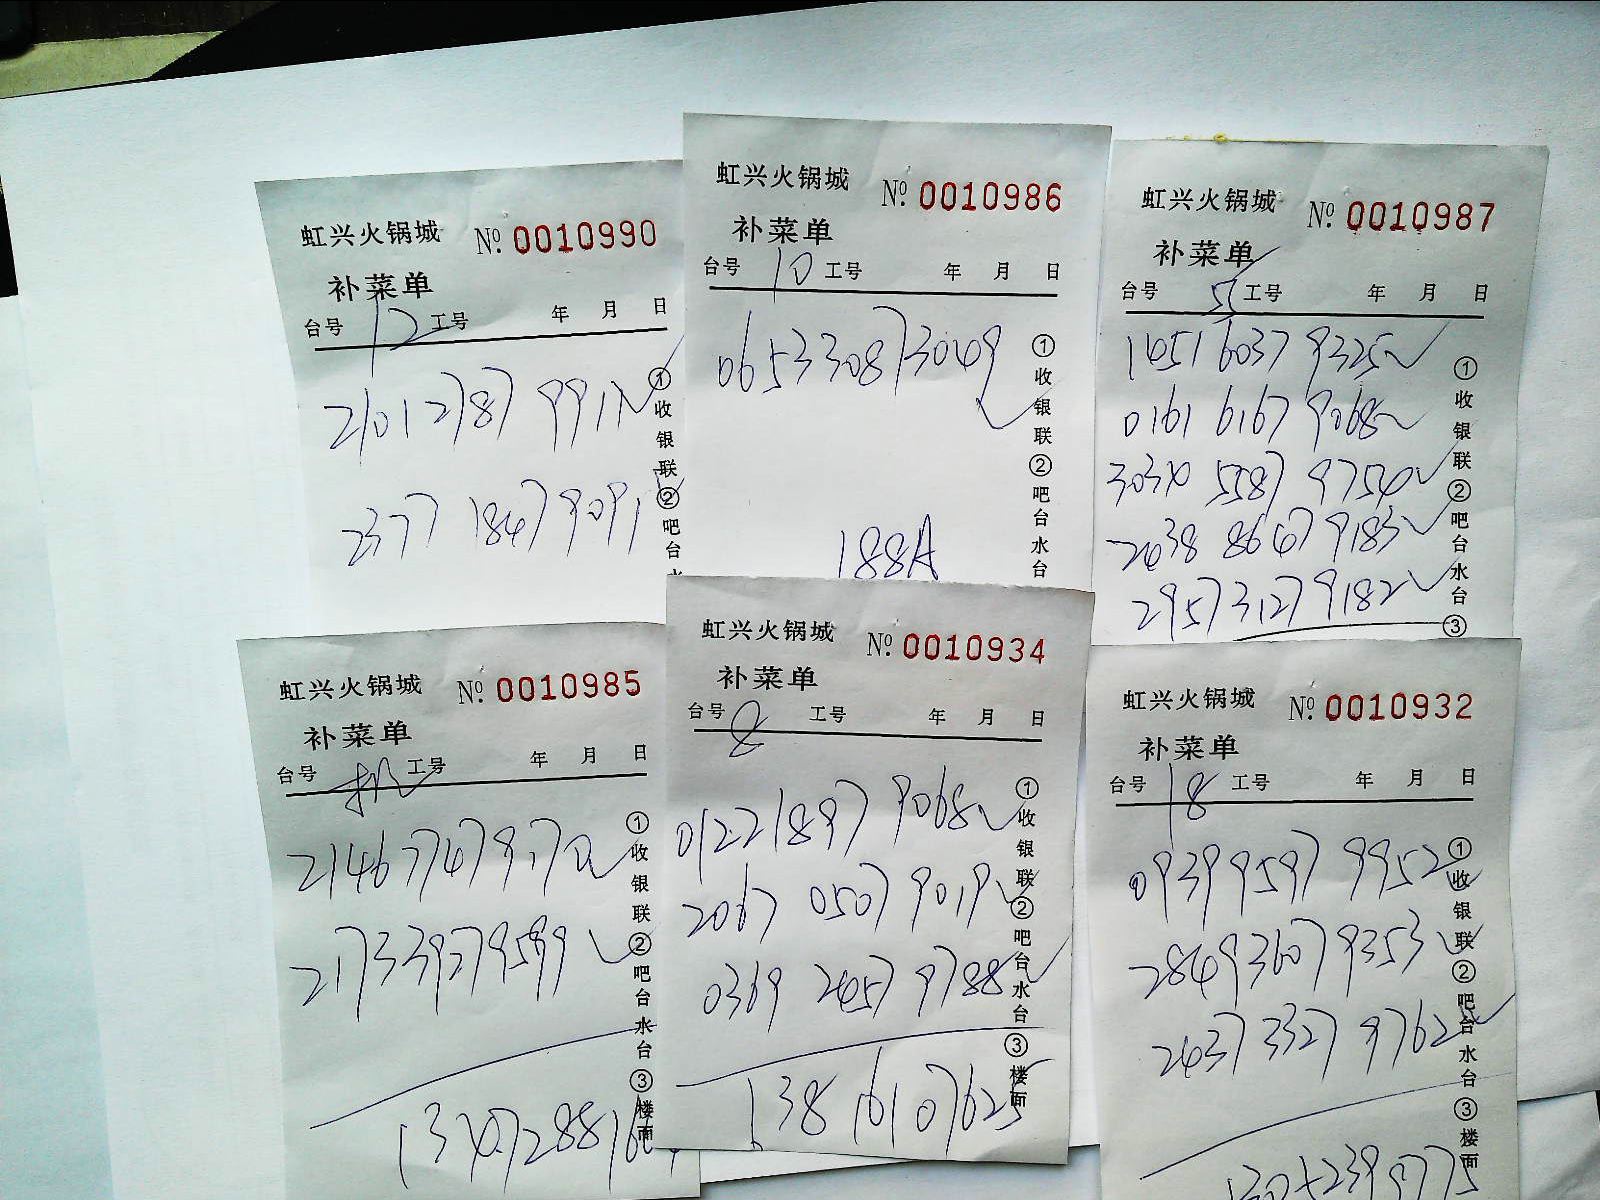 虹兴火锅城 №. 0010990
补菜单
台号 12 工号 年 月 日
21012787 9911
2377 1847 9091
①收银联②吧台水
虹兴火锅城 №. 0010986
补菜单
台号 10 工号 年 月 日
0653 3087 3049
188A
①收银联②吧台水台
虹兴火锅城 №. 0010987
补菜单
台号 5 工号 年 月 日
1451 6037 9325
0161 6167 9068
5587 9754
2438 8647 9183
2957 3127 9182
①收银联②吧台水台③
虹兴火锅城 №. 0010985
补菜单
台号 工号 年 月 日
2146 7747 9170
2173 3927 9599
①收银联②吧台水台③楼面
虹兴火锅城 №. 0010934
补菜单
台号 8 工号 年 月 日
0122 1897 9068
2067 0507 9019
0369 2457 9788
138 1610 7625
①收银联②吧台水台③楼面
虹兴火锅城 №. 0010932
补菜单
台号 18 工号 年 月 日
0939 9597 9952
2849 3607 9353
2437 3327 9762
①收银联②吧台水台③楼面